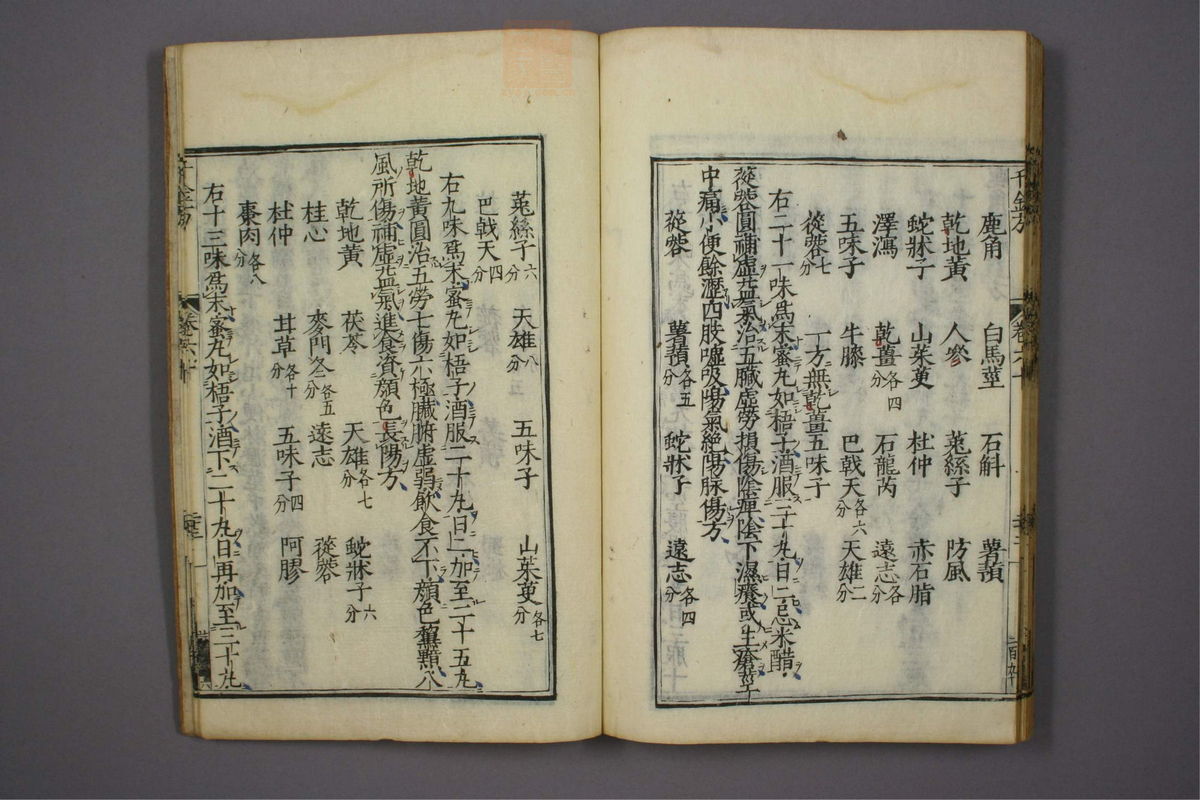 鹿角 白馬莖 石斛 薯蕷
乾地黃 人參 菟絲子 防風
蛇牀子 山茱萸 杜仲 赤石脂
澤瀉 乾薑各四分 石龍芮 遠志各分
五味子 牛膝 巴戟天各六分 天雄二分
蓯蓉七分 一方無乾薑五味子
右二十一味爲末蜜丸如梧子酒服三十丸日二忌米醋
蓯蓉圓補虛益氣治五臟虛勞損傷陰痺陰下濕癢或生瘡莖
中痛小便餘瀝四肢噓吸陽氣絕陽脉傷方
蓯蓉 薯蕷各五分 蛇牀子 遠志各四分
菟絲子六分 天雄八分 五味子 山茱萸各七分
巴戟天四分
右九味爲末蜜丸如梧子酒服二十丸日二加至二十五丸
乾地黃圓治五勞七傷六極臟腑虛弱飲食不下顏色黧黯八
風所傷補虛益氣進食資顏色長陽方
乾地黃 茯苓 天雄各七分 蛇牀子六分
桂心 麥門冬各五分 遠志 蓯蓉
杜仲 甘草各十分 五味子四分 阿膠
棗肉各八分
右十三味爲末蜜丸如梧子酒下二十丸日再加至三十丸